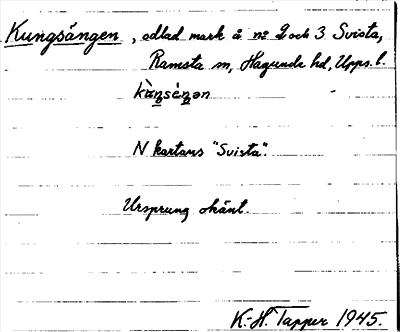 Kungsängen, odlad mark å nº 2 och 3 Svista,
Ramsta sn, Hagunda hd, Upps. l.
N kartans "Svista".
Ursprung okänt.
K.-H. Tapper 1945.